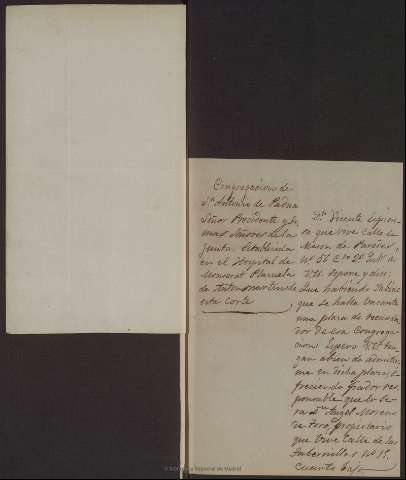 Congregacion de
Sn. Antonio de Padua
Señor Presidente y de
mas Señores de la
Junta, Establecida
en el Hospital de
Monserat Plazuela
de Anton martin de
esta Corte
Dn. Vicente
en que vive Calle de
Meson de Paredes,
Nº 56
V.SS. espone y dice:
Que habiendo Sabido
que se halla bacante
una plaza de recauda
dor de esa Congrega
cion Espero V.SS. ten
gan a bien de admitir
me en dicha plaza, o
freciendo fiador res
ponsable que lo se
ra Dn. Angel Moreno
de toro propietario
que Vive Calle de las
Tabernillas Nº 15.
Cuarto bajo
© Biblioteca Regional de Madrid